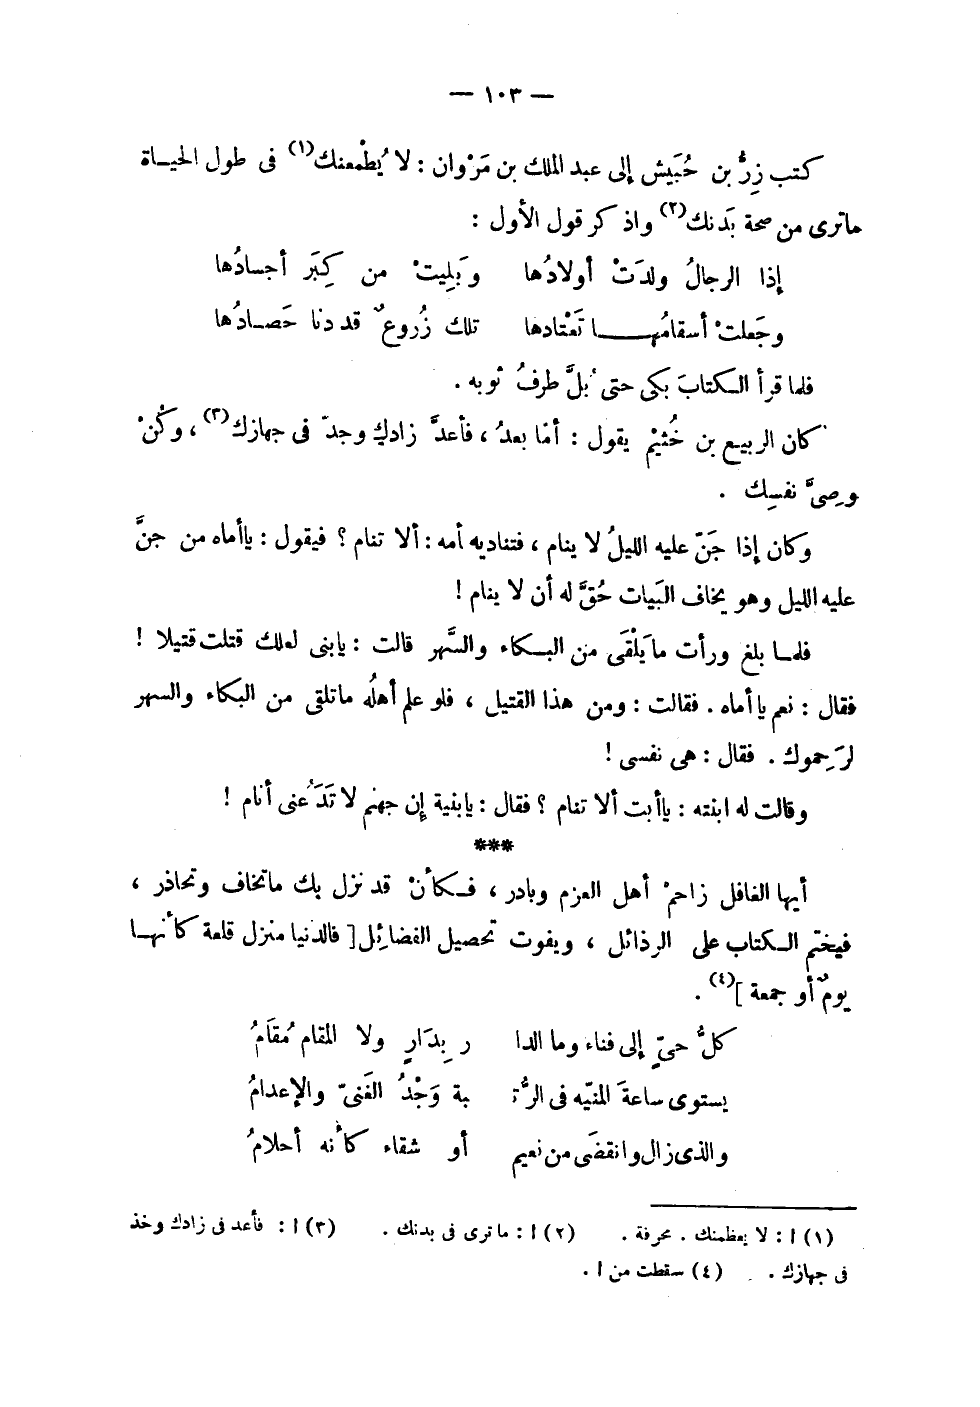 — ١٠٣ —
كتب زِرُّ بن حُبَيش إلى عبد الملك بن مَرْوان : لا يُطْمعنك(١) فى طول الحيـاة
ماترى من صحة بَدنك(٢) واذكر قول الأول :
إذا الرجالُ ولدَتْ أولادُها وَبَلِيتْ من كِبَر أجسادُها
وجَعلتْ أسقامُهـــا تَعْتادها تلك زُروعٌ قد دنا حَصـادُها
فلما قرأ الـكتابَ بكى حتى بُلَّ طرفُ ثوبه .
كان الربيع بن خُثيْم يقول : أمّا بعدُ ، فأعدَّ زادك وجدّ فى جهازك(٣) ، وكُنْ
وصِىَّ نفسِك .
وكان إذا جَنّ عليه الليلُ لا ينام ، فتناديه أمه : ألا تنام ؟ فيقول : ياأماه من جنَّ
عليه الليل وهو يخاف البَيات حُقَّ له أن لا ينام !
فلمـا بلغ ورأت ما يَلْقَى من البـكاء والسَّهر قالت : يابنى لعلك قتلت قتيلا !
فقال : نعم ياأماه . فقالت : ومن هذا القتيل ، فلو علم أهلُه ماتلقى من البكاء والسهر
لرَحِموك . فقال : هى نفسى !
وقالت له ابنته : ياأبت ألا تنام ؟ فقال : يابنية إن جهنم لا تَدَعُنى أنام !
***
أيها الغافل زاحمْ أهل العزم وبادر ، فـكأنْ قد نزل بك ماتخاف وتحاذر ،
فيختم الـكتاب على الرذائل ، ويفوت تحصيل الفضائِل [ فالدنيا منزل قلعة كأنهـا
يومٌ أو جمعة ](٤) .
كلُّ حىٍّ إلى فناء وما الدا ر بِدَارٍ ولا المقام مُقَامُ
يستوى ساعةَ المنيّه فى الرُّتـ بة وَجْدُ الغَنىّ والإعدامُ
والذى زال وانقضَى من نعيم أو شقاء كأنه أحلامُ
(١) ا : لا يعظمنك . محرفة . (٢) ا : ماترى فى بدنك . (٣) ا : فأعد فى زادك وخذ
فى جهازك . (٤) سقطت من ا .